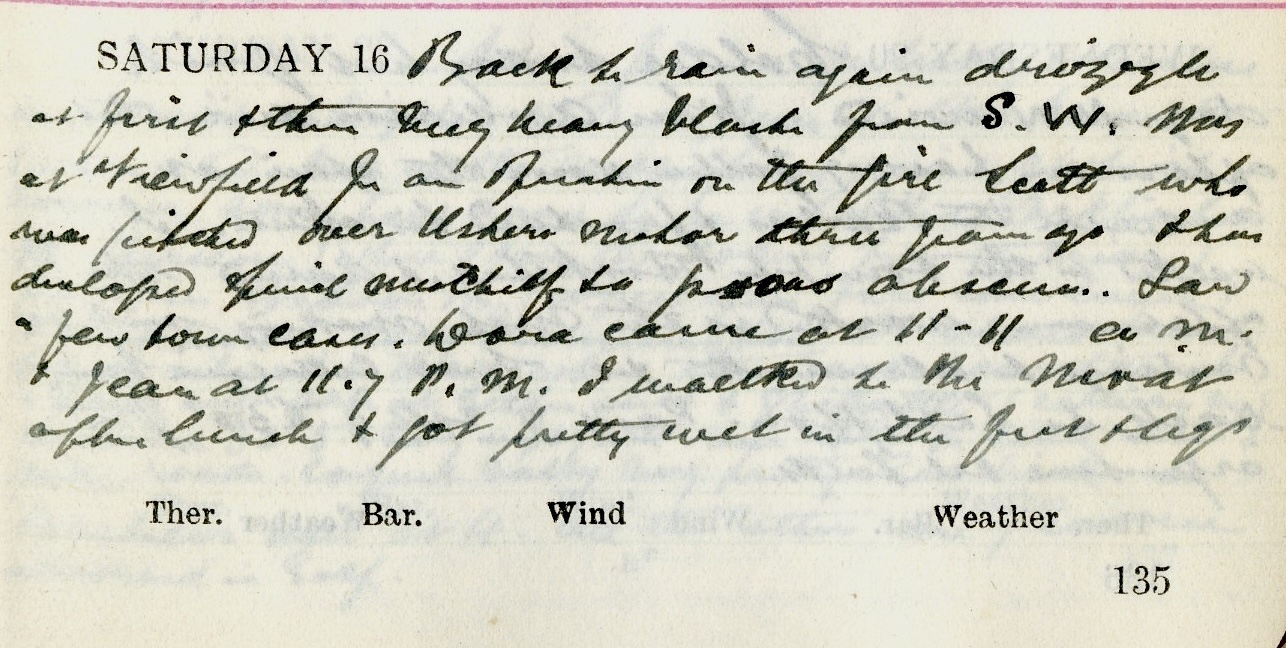 SATURDAY 16 Back to rain again drizzle
at first & then very heavy from S.W. Was
at Viewfield for an on the girl Scott who
was pitched over Ushers motor three years ago & has
developed spinal mischief to psoas abscess. Saw
a few town cases. Dora came at 11-11 a.m.
& Jean at 11.7 P.M. I walked to the
after lunch & got pretty wet in the feet & legs
Ther. Bar. Wind Weather
135